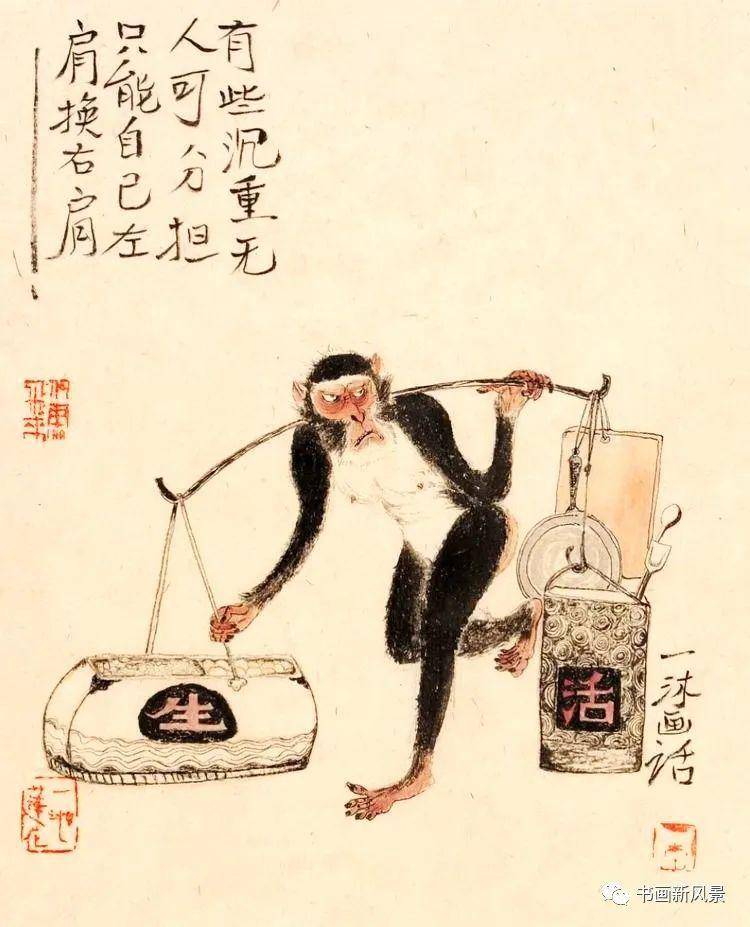 有些沉重无
人可分担
只能自己左
肩换右肩
生
活
一沐画话
书画新风景